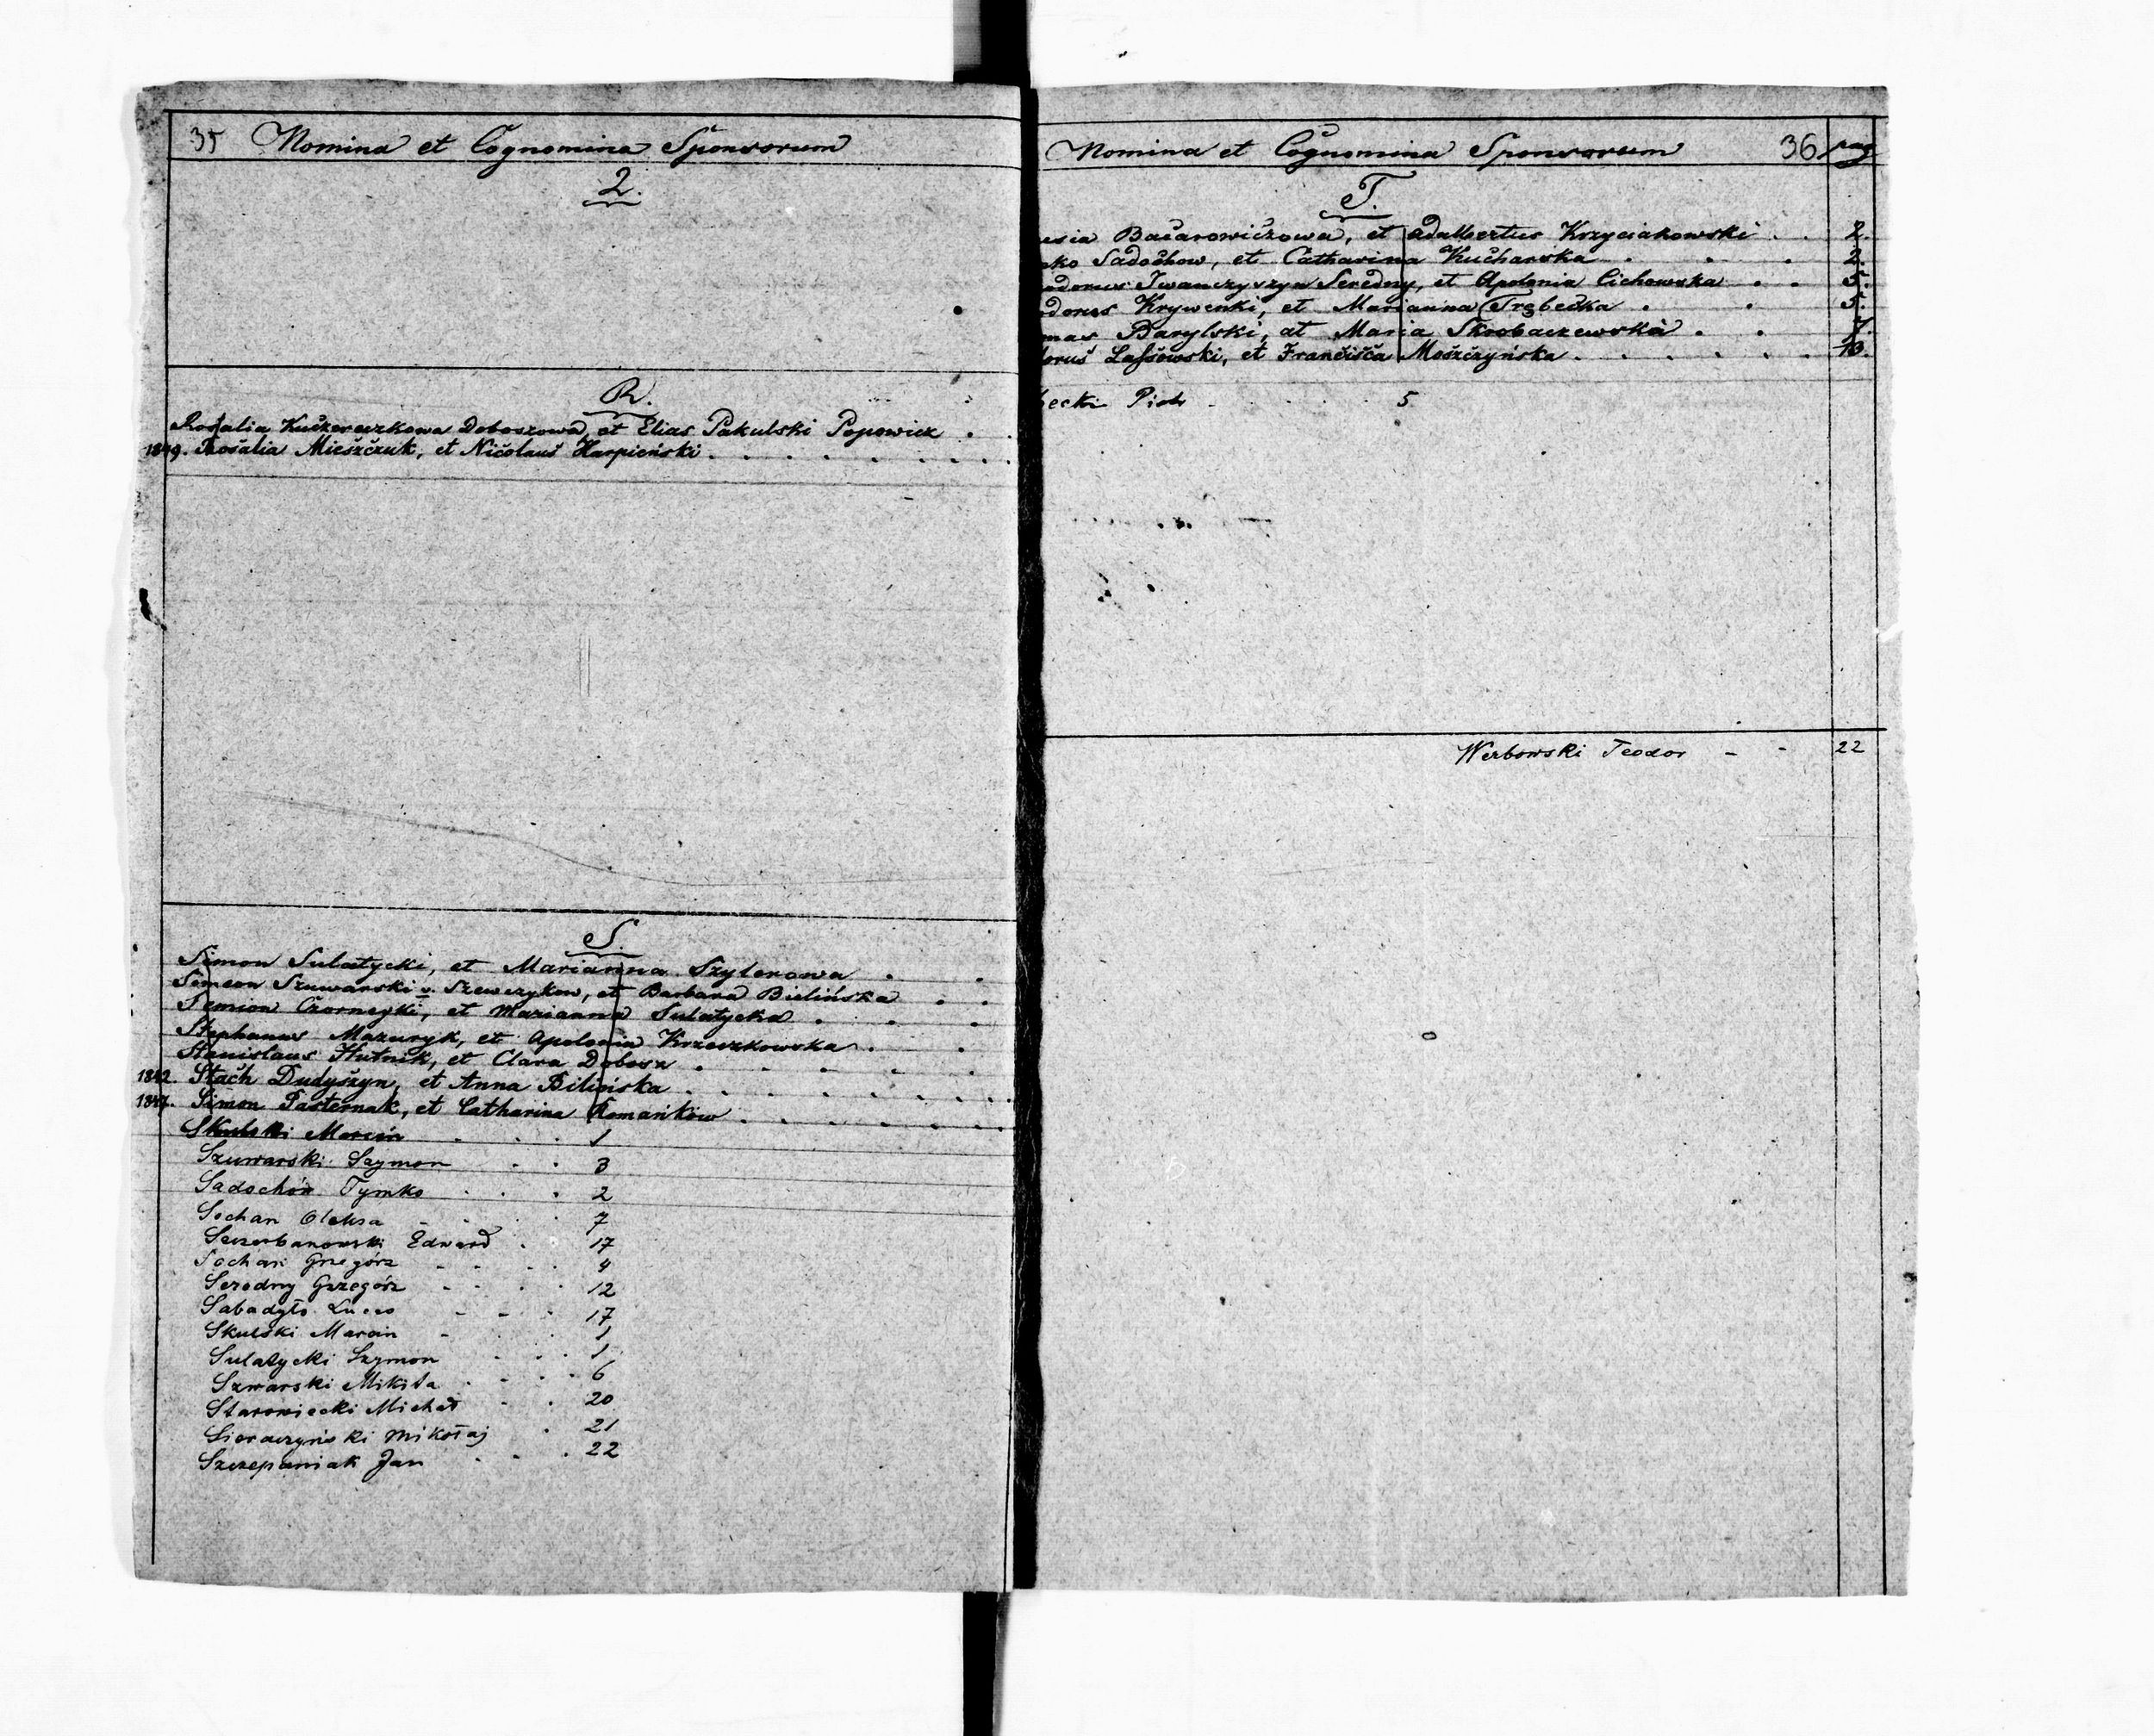 35 Nomina et Cognomina Sponsorum
Q.
R.
Rosalia Kuczereczkowa Doboszowa, et Elias Pakulski Popowicz . .
1849. Rosalia Mieszczuk, et Nicolaus Karpiński . . . . . . . .
S.
Simon Sulatycki, et Marianna Szylerowa . .
Simeon Szuwarski v. Szewczykow, et Barbara Bielińska . .
Semion Czorneyki, et Marianna Sulatycka . . .
Stephanus Mazuryk, et Apolonia Krzeszkowska . .
Stanislaus Hutnik, et Clara Dobosz . . . . .
1842. Stach Dudyszyn, et Anna Bilińska . . . . . . .
1847. Simon Pasternak, et Catharina Romanków . . . . . . .
Skulski Marcin . . . 1
Szuwarski Szymon . . 3
Sadochów Tymko . . . 2
Sochan Oleksa - . . . 7
Szczerbanowski Edward . . 17
Sochań Grzegórz - - . . 4
Seredny Grzegórz - - . . 12
Sabadyło - - . 17
Skulski Marcin - . . 1
Sulatycki Szymon - . . 1
Szwarski Mikita . - . . 6
Starowiecki Michał - . 20
Sieraczyński Mikołaj . 21
Szczepaniak Jan . - . 22
Nomina et Cognomina Sponsorum 36 pag
T.
esia Bacarowiczowa, et Adalbertus Krzyciakowski . . 2.
ko Sadochow, et Catharina Kucharska . . . 2.
odorus Iwanczyszyn Seredny, et Apolonia Cichowska . . 5.
odorus Krywenki, et Marianna Trębecka . . 5.
mas Barylski, at Maria Skrobaczewska . . 7.
orus Lassowski, et Francisca Moszczyńska . . . . . . 13.
becki Piotr . . . 5
Werbowski Teodor - - 22